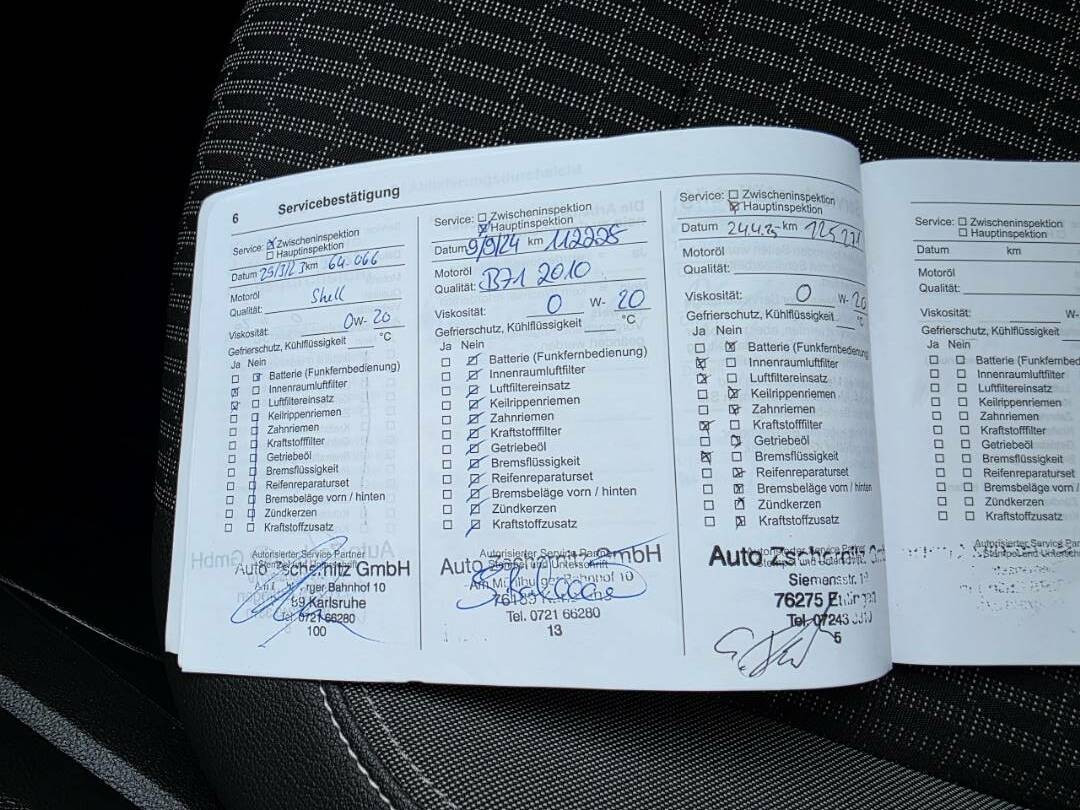 6 Servicebestätigung
Service: ☒ Zwischeninspektion
☐ Hauptinspektion
Datum 25/3/23 km 64.066
Motoröl
Qualität: Shell
Viskosität: 0W-20
Gefrierschutz, Kühlflüssigkeit °C
Ja Nein
Batterie (Funkfernbedienung)
Innenraumluftfilter
Luftfiltereinsatz
Keilrippenriemen
Zahnriemen
Kraftstofffilter
Getriebeöl
Bremsflüssigkeit
Reifenreparaturset
Bremsbeläge vorn / hinten
Zündkerzen
Kraftstoffzusatz
Autorisierter Service Partner
Auto Zschernitz GmbH
Karlsruhe
Tel. 0721 66280
100
Service: ☐ Zwischeninspektion
☒ Hauptinspektion
Datum 9/9/24 km 112225
Motoröl
Qualität: B71 2010
Viskosität: 0 W- 20
Gefrierschutz, Kühlflüssigkeit °C
Ja Nein
Batterie (Funkfernbedienung)
Innenraumluftfilter
Luftfiltereinsatz
Keilrippenriemen
Zahnriemen
Kraftstofffilter
Getriebeöl
Bremsflüssigkeit
Reifenreparaturset
Bremsbeläge vorn / hinten
Zündkerzen
Kraftstoffzusatz
Autorisierter Service Partner
Stempel und Unterschrift
Auto Zschernitz GmbH
Am Mühlburger Bahnhof 10
Tel. 0721 66280
13
Service: ☐ Zwischeninspektion
☒ Hauptinspektion
Datum 24.4.25 km 125271
Motoröl
Qualität:
Viskosität: 0 W- 20
Gefrierschutz, Kühlflüssigkeit °C
Ja Nein
Batterie (Funkfernbedienung
Innenraumluftfilter
Luftfiltereinsatz
Keilrippenriemen
Zahnriemen
Kraftstofffilter
Getriebeöl
Bremsflüssigkeit
Reifenreparaturset
Bremsbeläge vorn / hinten
Zündkerzen
Kraftstoffzusatz
Auto Zschernitz
Siemensstr.
76275
Tel. 07243
5
Service: ☐ Zwischeninspektion
☐ Hauptinspektion
Datum km
Motoröl
Qualität:
Viskosität: W-
Gefrierschutz, Kühlflüssigkeit
Ja Nein
Batterie (Funkfernbed
Innenraumluftfilter
Luftfiltereinsatz
Keilrippenriemen
Zahnriemen
Kraftstofffilter
Getriebeöl
Bremsflüssigkeit
Reifenreparaturset
Bremsbeläge vorn /
Zündkerzen
Kraftstoffzusatz
Autorisierter Service Par